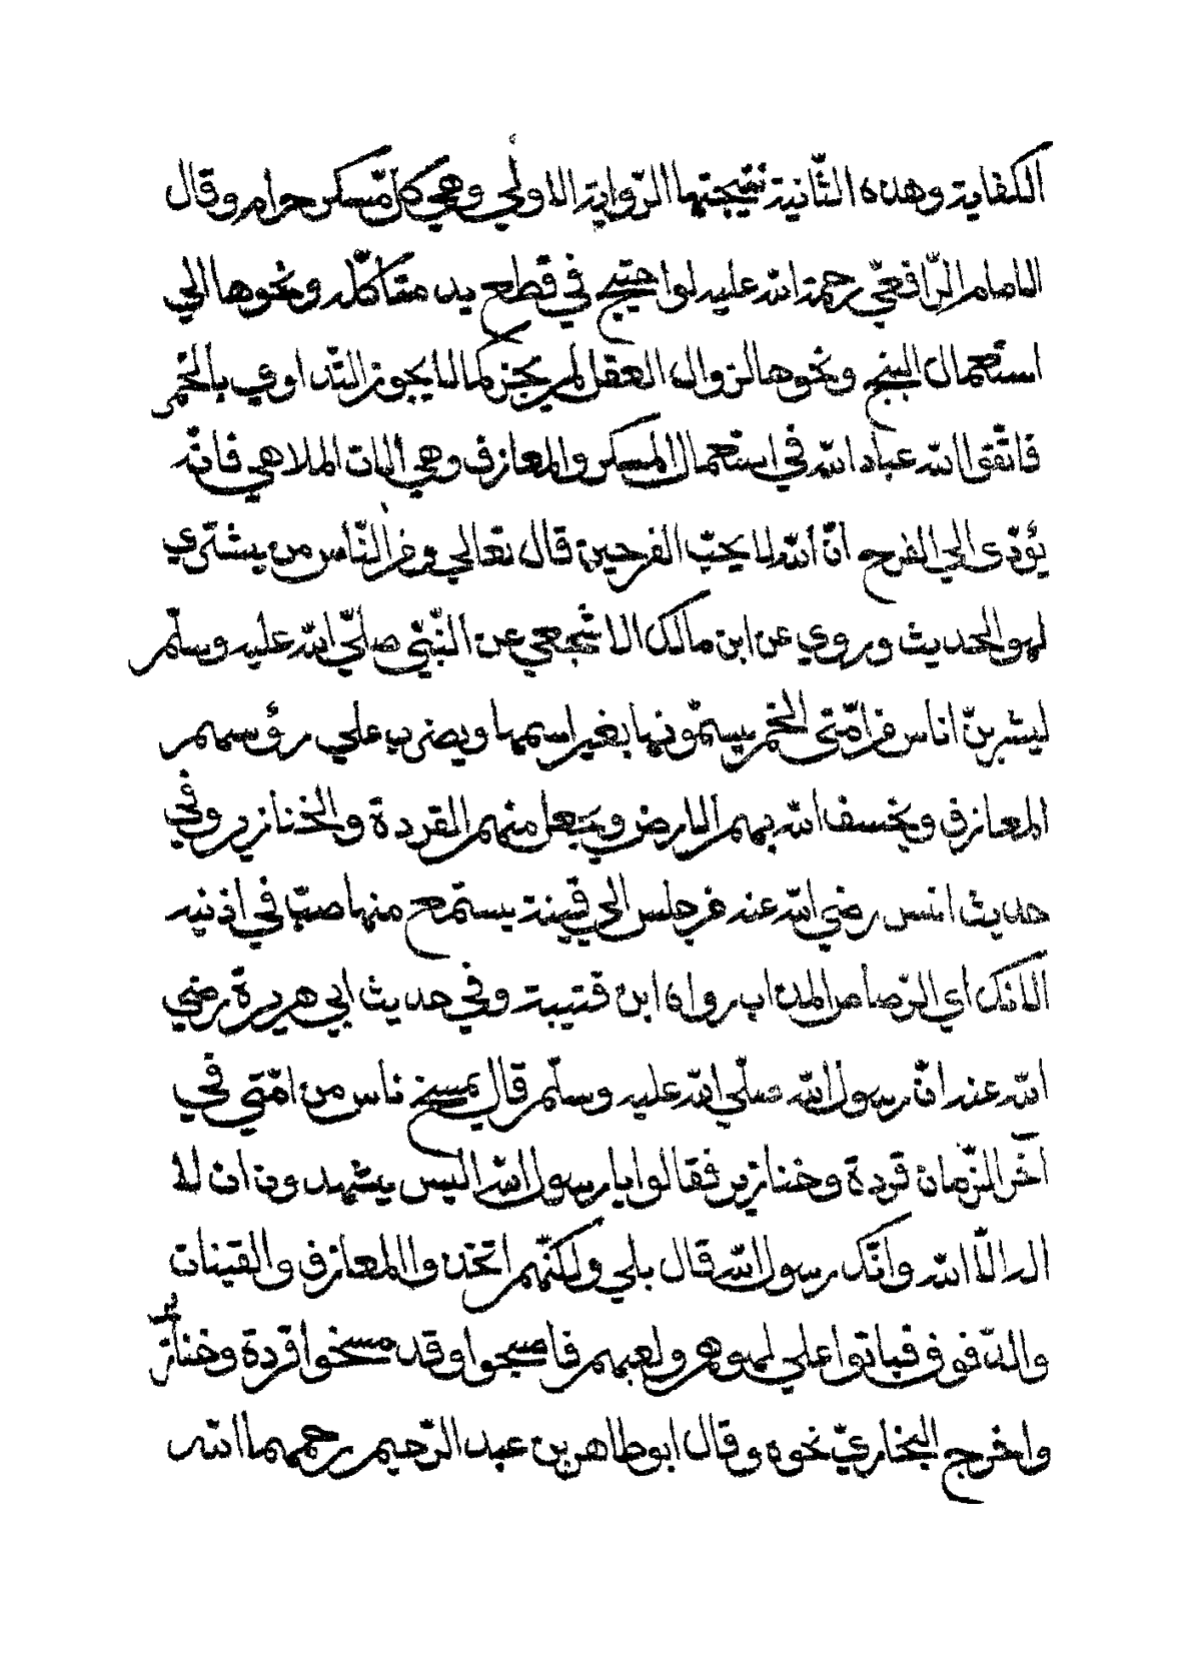 الكفاية وهذه الثّانية نتيجتها الرّواية الاولي وهي كلّ مسكر حرام وقال
الامام الرّافعيّ رحمة الله عليه لو احتيج في قطع يد متاكّلة ونحوها الي
استعمال البنج ونحوها لزوال العقل لم يجز كما لا يجوز التّداوي بالخمر
فاتّقوا الله عباد الله في استعمال المسكر والمعازف وهي ألات الملاهي فانّه
يؤدّى الي الفرح انّ الله لا يحبّ الفرحين قال تعالي ومن النّاس من يشتري
لهو الحديث وروي عن ابن مالك الاشجعي عن النّبيّ صلّي الله عليه وسلّم
ليشربنّ اناس من امّتى الخمر يسمّونها بغير اسمها ويضرب علي رؤسهم
المعازف ويخسف الله بهم الارض ويجعل منهم القردة والخنازير وفي
حديث انس رضي الله عنه من جلس الي قينة يستمع منها صبّ في اذنيه
الانك اي الرّصاص المذاب رواه ابن قتيبة وفي حديث ابي هريرة رضي
الله عنه انّ رسول الله صلّي الله عليه وسلّم قال يمسخ ناس من امّتي في
آخر الزّمان قردة وخنازير فقالوا يا رسول الله اليس يشهدون ان لا
اله الّا الله وانّك رسول الله قال بلي ولكنّهم اتخذوا المعازف والقينات
والدّفوف فباتوا علي لهوهم ولعبهم فاصبحوا وقد مسخوا قردة وخنازير
واخرج البخاريّ نحوه وقال ابو طاهر بن عبد الرّحيم رحمهما الله